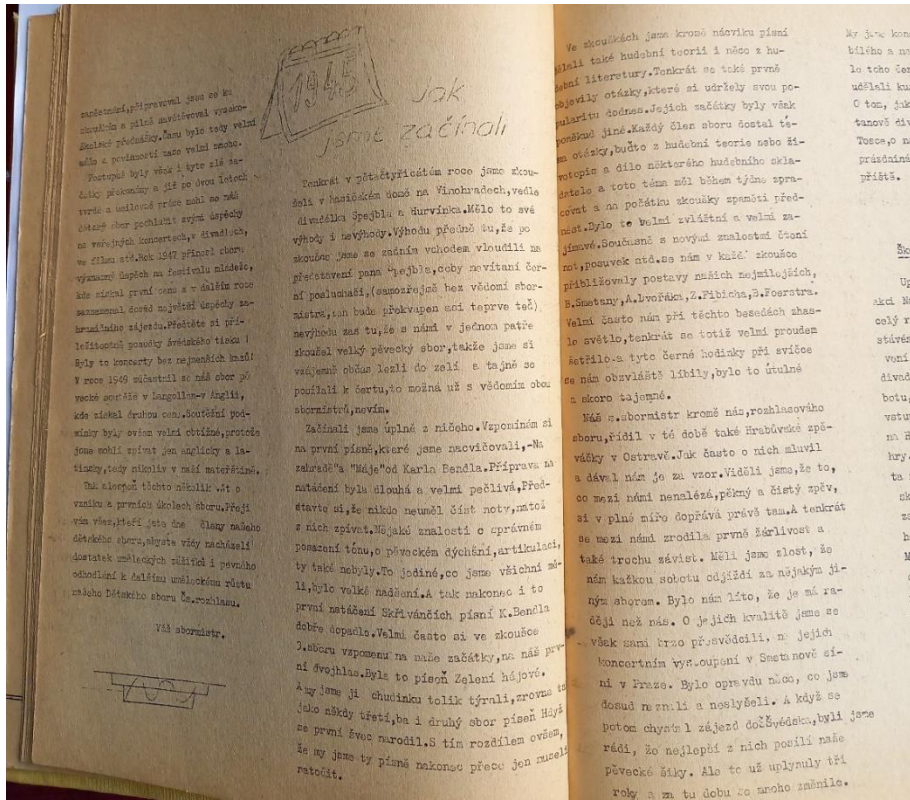 zaměstnání,připravoval jsem se ke
zkouškám a pilně navštěvoval vysoko-
školské přednášky.Času bylo tedy velmi
málo a povinností zase velmi mnoho.
Postupně byly však i tyto zlé za-
čátky překonány a již po dvou letech
tvrdé a usilovné práce mohl se náš
dětský sbor pochlubit svými úspěchy
na veřejných koncertech,v divadlech,
ve filmu atd.Rok 1947 přinesl sboru
významný úspěch na festivalu mládeže,
kde získal první cenu a v dalším roce
zaznamenal dosud největší úspěchy za-
hraničního zájezdu.Přečtěte si při-
ležitostně posudky švédského tisku !
Byly to koncerty bez nejmenších kazů!
V roce 1949 zúčastnil se náš sbor pě-
vecké soutěže v Langollen-v Anglii,
kde získal druhou cenu.Soutěžní pod-
mínky byly ovšem velmi obtížné,protože
jsme mohli zpívat jen anglicky a la-
tinsky,tedy nikoliv v naší mateřštině.
Tak alespoň těchto několik vět o
vzniku a prvních úkolech sboru.Přeji
vám všem,kteří jste dne členy našeho
dětského sboru,abyste vždy nacházeli
dostatek uměleckých zážitků i pevného
odhodlání k dalšímu uměleckému růstu
našeho Dětského sboru Čs.rozhlasu.
Váš sbormistr.
1945
Jak
jsme začínali
Tenkrát v pětačtyřicátém roce jsme zkou-
šeli v hasičském domě na Vinohradech,vedle
divadélka Špejbla a Hurvínka.Mělo to své
výhody i nevýhody.Výhodu předně tu,že po
zkoušce jsme se zadním vchodem vloudili na
představení pana Špejbla,coby nevítaní čer-
ní posluchači,(samozřejmě bez vědomí sbor-
mistra,ten bude překvapen asi teprve teď)
nevýhodu zas tu,že s námi v jednom patře
zkoušel velký pěvecký sbor,takže jsme si
vzájemně občas lezli do zelí a tajně se
posílali k čertu,to možná už s vědomím obou
sbormistrů,nevím.
Začínali jsme úplně z ničeho.Vzpomínám si
na první písně,které jsme nacvičovali,-Na
zahrádě"a "Máje"od Karla Bendla.Příprava na
natáčení byla dlouhá a velmi pečlivá,Před-
stavte si,že nikdo neuměl číst noty,natož
z nich zpívat.Nějaké znalosti o správném
posazení tónu,o pěveckém dýchání,artikulaci,
ty také nebyly.To jediné,co jsme všichni mě-
li,bylo velké nadšení.A tak nakonec i to
první natáčení Skřivánčích písní K.Bendla
dobře dopadlo.Velmi často si ve zkoušce
3.sboru vzpomenu na naše začátky,na náš prv-
ní dvojhlas.Byla to píseň Zelení hájové.
A my jsme ji chudinku tolik týrali,zrovna ta
jako někdy třetí,ba i druhý sbor píseň Když
se první švec narodil.S tím rozdílem ovšem,
že my jsme ty písně nakonec přece jen museli
natočit.
Ve zkouškách jsme kromě nácviku písní
dělali také hudební teorii i něco z hu-
dební literatury.Tenkrát se také prvně
objevily otázky,které si udržely svou po-
pularitu dodnes.Jejich začátky byly však
poněkud jiné.Každý člen sboru dostal té-
ma otázky,buďto z hudební teorie nebo ži-
votopis a dílo některého hudebního skla-
datele a toto téma měl během týdne zpra-
covat a na počátku zkoušky zpaměti před-
nést.Bylo to velmi zvláštní a velmi za-
jímavé.Současně s novými znalostmi čtení
not,posuvek atd.se nám v každé zkoušce
přibližovaly postavy našich nejmilejších,
B.Smetany,A.Dvořáka,Z.Fibicha,B.Foerstra.
Velmi často nám při těchto besedách zhas-
lo světlo,tenkrát se totiž velmi proudem
šetřilo.a tyto černé hodinky při svíčce
se nám obzvláště líbily,bylo to útulné
a skoro tajemné.
Náš s.sbormistr kromě nás,rozhlasového
sboru,řídil v té době také Hrabůvské zpě-
váčky v Ostravě.Jak často o nich mluvil
a dával nám je za vzor.Viděli jsme,že to,
co mezi námi nenalézá,pěkný a čistý zpěv,
si v plné míře dopřává právě tam.A tenkrát
se mezi námi zrodila prvně žárlivost a
také trochu závist. Měli jsme zlost, že
nám každou sobotu odjíždí za nějakým ji-
ným sborem. Bylo nám líto, že je má ra-
ději než nás. O jejich kvalitě jsme se
však sami brzo přesvědčili, na jejich
koncertním vystoupení v Smetanově sí-
ni v Praze. Bylo opravdu něco, co jsme
dosud neznali a neslyšeli. A když se
potom chystal zájezd do Švédska,byli jsme
rádi, že nejlepší z nich posílí naše
pěvecké šiky. Ale to už uplynuly tři
roky a za tu dobu se mnoho změnilo.
My jsme kon
bílého a na
le toho čes
udělali ku
O tom, jak
tanově div
Tosce,o n
prázdniná
příště.
Ško
Up
akci N
celý r
stávé
vení
divad
botu,
vstu
na H
hry.
ta
sk